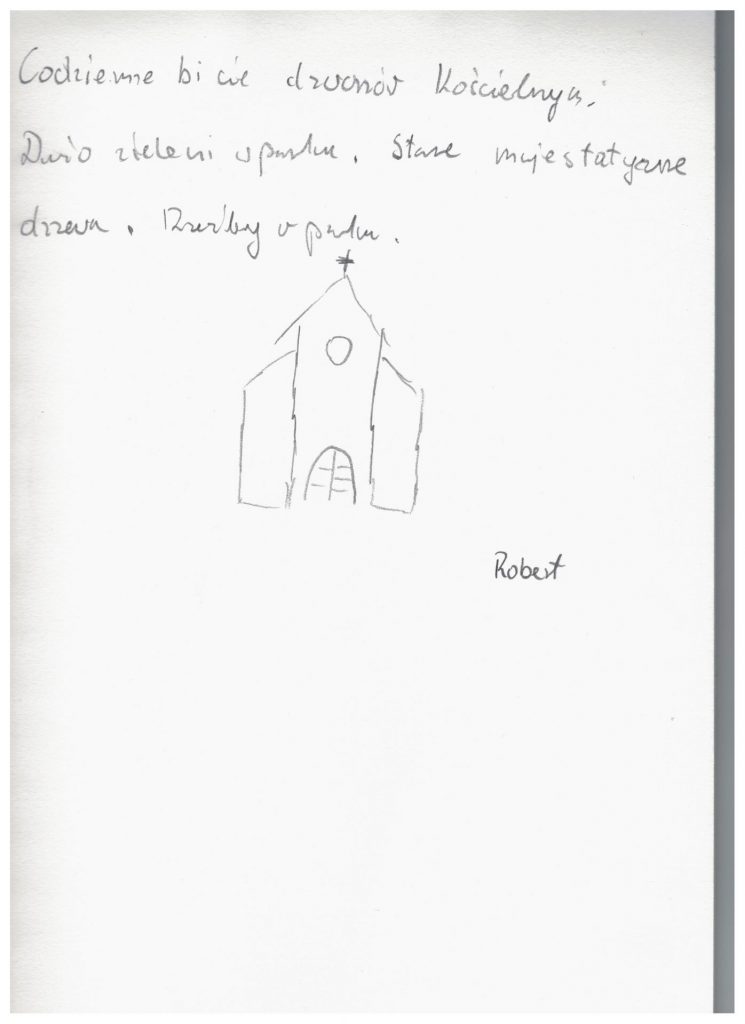 Codzienne bicie dzwonów Kościelnych.
Dużo zieleni w parku. Stare majestatyczne
drzewa. Rzeźby w parku.
Robert